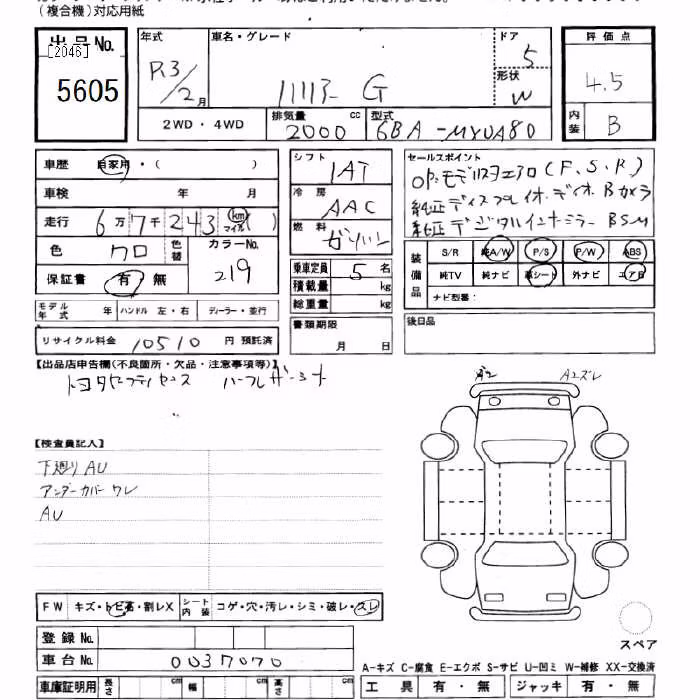 (複合機)対応用紙
出品No.
[2046]
5605
年式
R3/2月
車名・グレード
ハリアー G
ドア
5
形状
W
評価点
4.5
内装
B
2WD・4WD
排気量
2000 cc
型式
6BA-MXUA80
車歴 自家用・( )
車検 年 月
走行 6万7千243 km マイル( )
色 クロ 色替
カラーNo. 219
保証書 有・無
シフト
IAT
冷房
AAC
燃料
ガソリン
乗車定員 5 名
積載量 kg
総重量 kg
書類期限
月 日
セールスポイント
OP.モデリスタエアロ(F.S.R)
純正ディスプレイオーディオ Bカメラ
純正デジタルインナーミラー BSM
装備品
S/R 純A/W P/S P/W ABS
純TV 純ナビ 革シート 外ナビ エアB
ナビ型番:
後日品
モデル年式 年 ハンドル 左・右 ディーラー・並行
リサイクル料金 10510 円 預託済
【出品店申告欄(不良箇所・欠品・注意事項等)】
トヨタセーフティセンス ハーフレザーシート
A2
A2ズレ
【検査員記入】
下廻りAU
アンダーカバーワレ
AU
FW キズ・トビ石・割レX
シート内装 コゲ・穴・汚レ・シミ・破レ・スレ
登録No.
車台No. 0037070
車庫証明用 長さ cm 幅 cm 高さ cm
スペア
A-キズ C-腐食 E-エクボ S-サビ U-凹ミ W-補修 XX-交換済
工具 有・無 ジャッキ 有・無